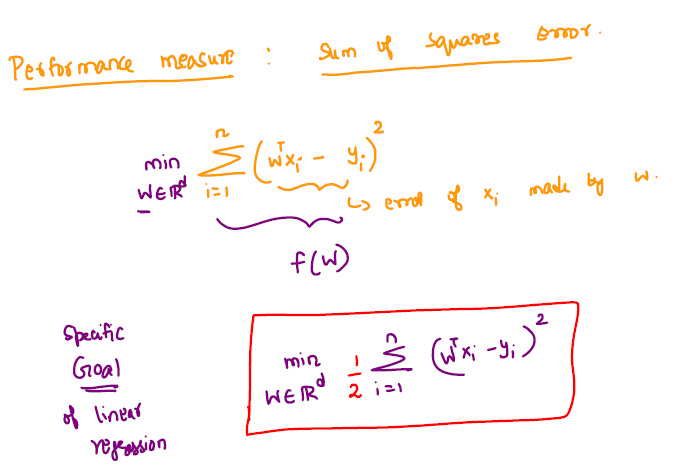 Performance measure : Sum of squares error.
min W∈ℝᵈ ∑ᵢ₌₁ⁿ (wᵀxᵢ - yᵢ)²
↳ error of xᵢ made by w.
f(W)
Specific
Goal
of linear
regression
min W∈ℝᵈ 1/2 ∑ᵢ₌₁ⁿ (wᵀxᵢ - yᵢ)²